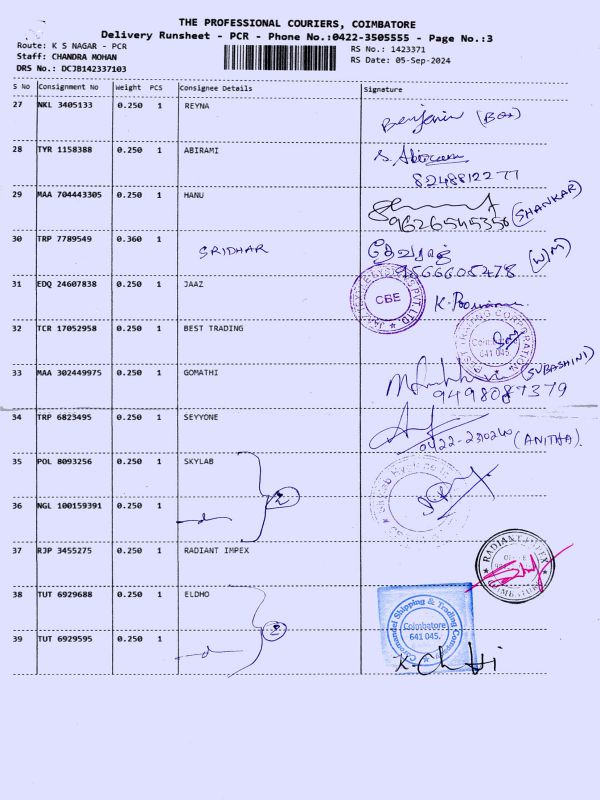 THE PROFESSIONAL COURIERS, COIMBATORE
Delivery Runsheet - PCR - Phone No.:0422-3505555 - Page No.:3
Route: K S NAGAR - PCR
RS No.: 1423371
Staff: CHANDRA MOHAN
RS Date: 05-Sep-2024
DRS No.: DCJB142337103
S No Consignment No Weight PCS Consignee Details Signature
27 NKL 3405133 0.250 1 REYNA
Benjamin (Bo)
28 TYR 1158388 0.250 1 ABIRAMI
S. Abirami
8248812277
29 MAA 704443305 0.250 1 HANU
(SHANKAR)
9626545356
30 TRP 7789549 0.360 1 SRIDHAR
தேவராஜ் (W/M)
9566605478
31 EDQ 24607838 0.250 1 JAAZ
CBE
K.
32 TCR 17052958 0.250 1 BEST TRADING
BEST TRADING CORPORATION
641 045.
33 MAA 302449975 0.250 1 GOMATHI
(SUBASHINI)
9498087379
34 TRP 6823495 0.250 1 SEYYONE
(ANITHA).
35 POL 8093256 0.250 1 SKYLAB
2
36 NGL 100159391 0.250 1
37 RJP 3455275 0.250 1 RADIANT IMPEX
RADIANT IMPEX
COIMBATORE
38 TUT 6929688 0.250 1 ELDHO
2
Coromandel Shipping & Trading Company
Coimbatore
641 045.
39 TUT 6929595 0.250 1